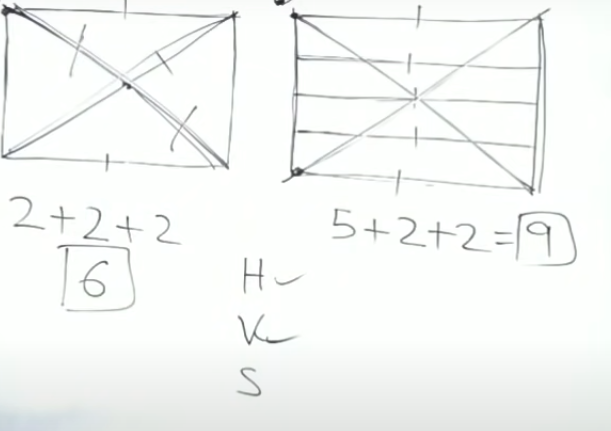 2+2+2
6
5+2+2=9
H
V
S